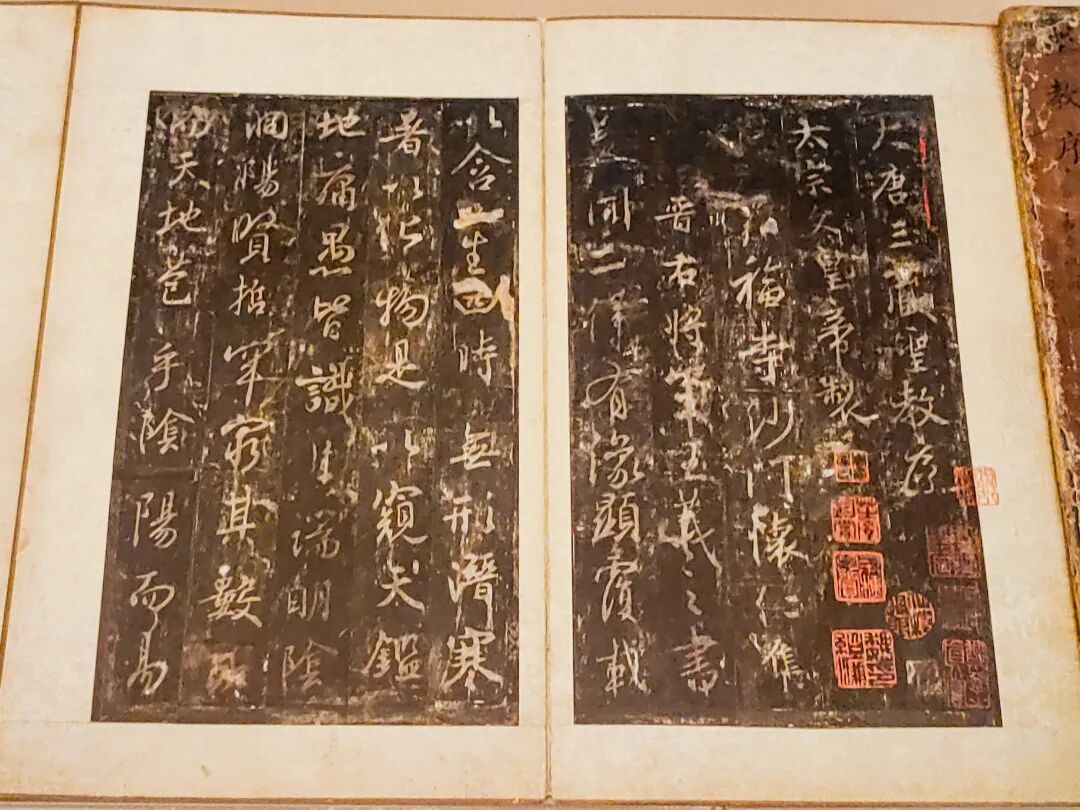 大唐三藏聖教序
太宗文皇帝製
弘福寺沙門懷仁集
晉右將軍王羲之書
蓋聞二儀有像顯覆載
以含生四時無形潛寒
暑以化物是以窺天鑑
地庸愚皆識其端明陰
洞陽賢哲罕窮其數然
而天地苞乎陰陽而易
教序